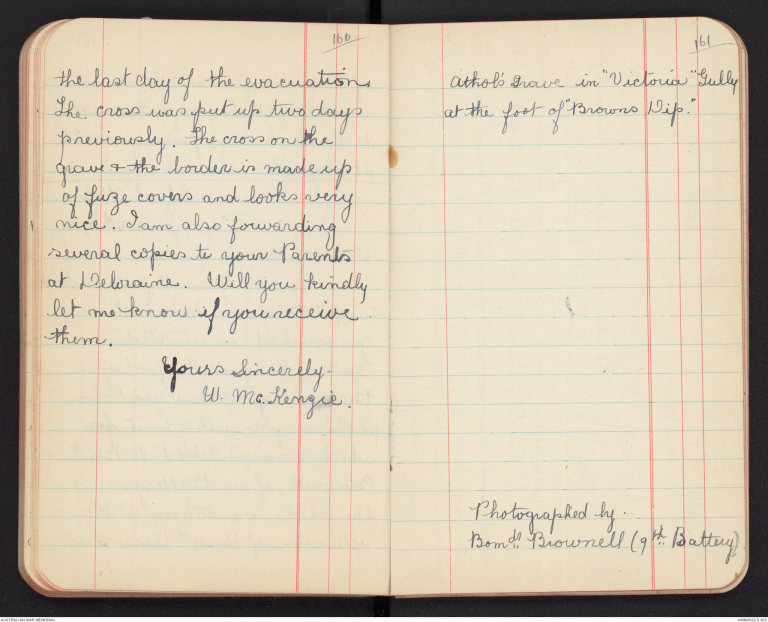 160
the last day of the evacuation.
The cross was put up two days
previously. The cross on the
grave & the border is made up
of fuze covers and looks very
nice. I am also forwarding
several copies to your Parents
at Deloraine. Will you kindly
let me know if you receive
them.
Yours Sincerely
W. McKenzie.
161
Athol's Grave in "Victoria" Gully
at the foot of "Browns Dip."
Photographed by
Bomdr Brownell (9th Battery)
AUSTRALIAN WAR MEMORIAL